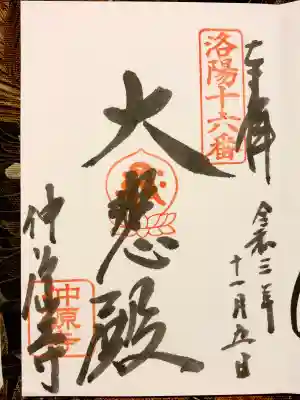 奉拝
洛陽十六番
令和三年
十一月五日
大悲殿
仲源寺
中原寺